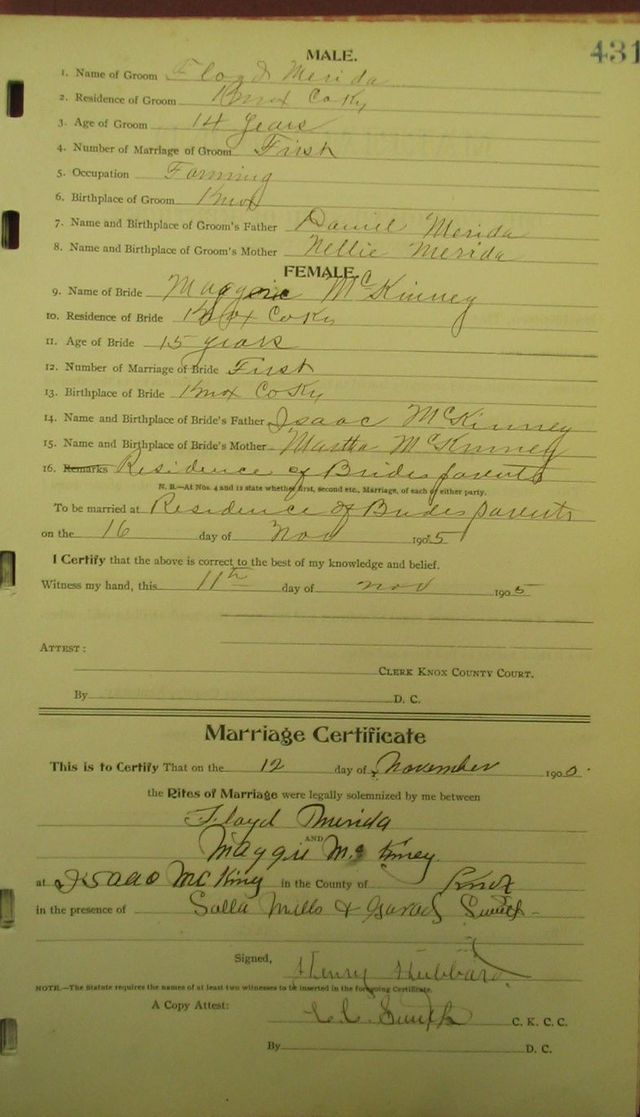 431
MALE.
1. Name of Groom Floyd Merida
2. Residence of Groom Knox Co Ky
3. Age of Groom 14 years
4. Number of Marriage of Groom First
5. Occupation Farming
6. Birthplace of Groom Knox
7. Name and Birthplace of Groom's Father Daniel Merida
8. Name and Birthplace of Groom's Mother Nellie Merida
FEMALE.
9. Name of Bride Maggie McKinney
10. Residence of Bride Knox Co Ky
11. Age of Bride 15 years
12. Number of Marriage of Bride First
13. Birthplace of Bride Knox Co Ky
14. Name and Birthplace of Bride's Father Isaac McKinney
15. Name and Birthplace of Bride's Mother Martha McKinney
16. Remarks Residence of Brides parents
N. B.—At Nos. 4 and 12 state whether first, second etc., Marriage, of each of either party.
To be married at Residence of Brides parents
on the 16 day of Nov 1905
I Certify that the above is correct to the best of my knowledge and belief.
Witness my hand, this 11th day of Nov 1905
ATTEST:
CLERK KNOX COUNTY COURT.
By D. C.
Marriage Certificate
This is to Certify That on the 12 day of November 190
the Rites of Marriage were legally solemnized by me between
Floyd Merida
AND
Maggie
at Isaac McKing in the County of Knox
in the presence of Mills & Smith
Signed, Henry Hubbard
NOTE.—The Statute requires the names of at least two witnesses to be inserted in the foregoing Certificate.
A Copy Attest: Smith C. K. C. C.
By D. C.